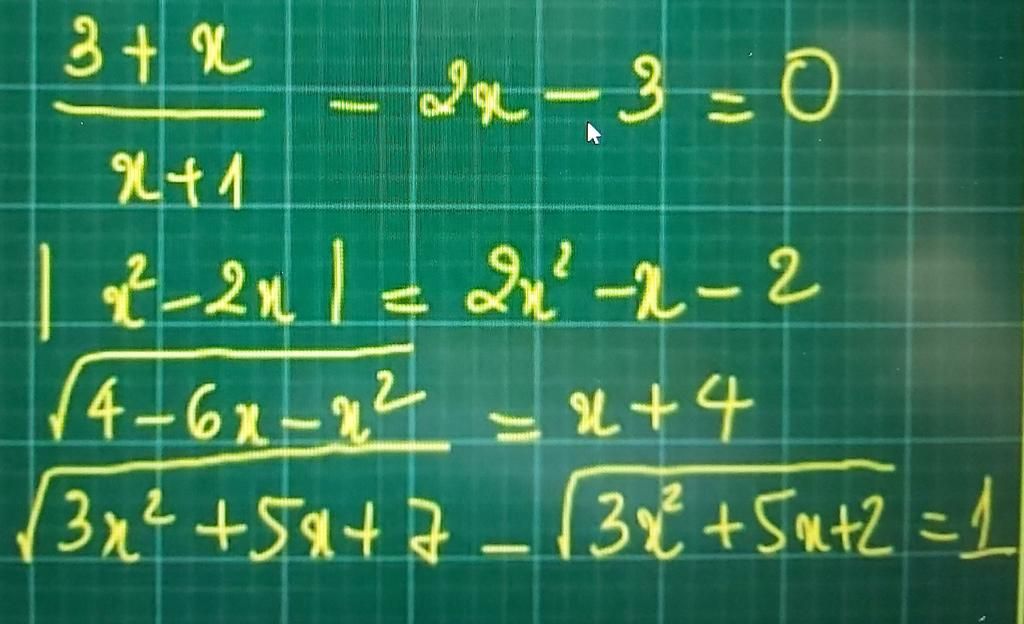 (3 + x)/(x + 1) - 2x - 3 = 0
|x² - 2x| = 2x² - x - 2
√(4 - 6x - x²) = x + 4
√(3x² + 5x + 7) - √(3x² + 5x + 2) = 1